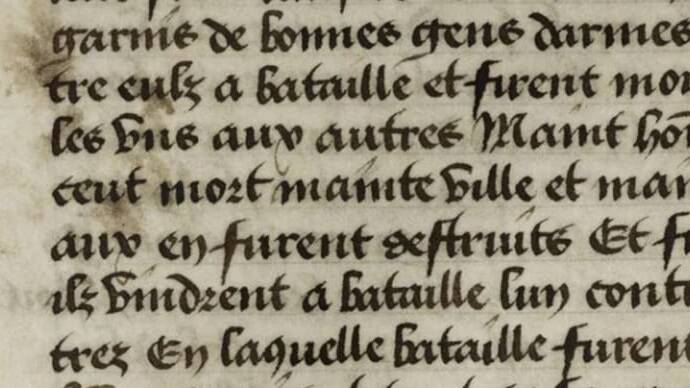 garnis de bonnes gens darmes
tre eulz a bataille et firent mor
les vns aux autres Maint hōm
ceut mort mainte ville et mai
aux en furent destruits Et fu
ilz vindrent a bataille lun cont
trez En laquelle bataille furent